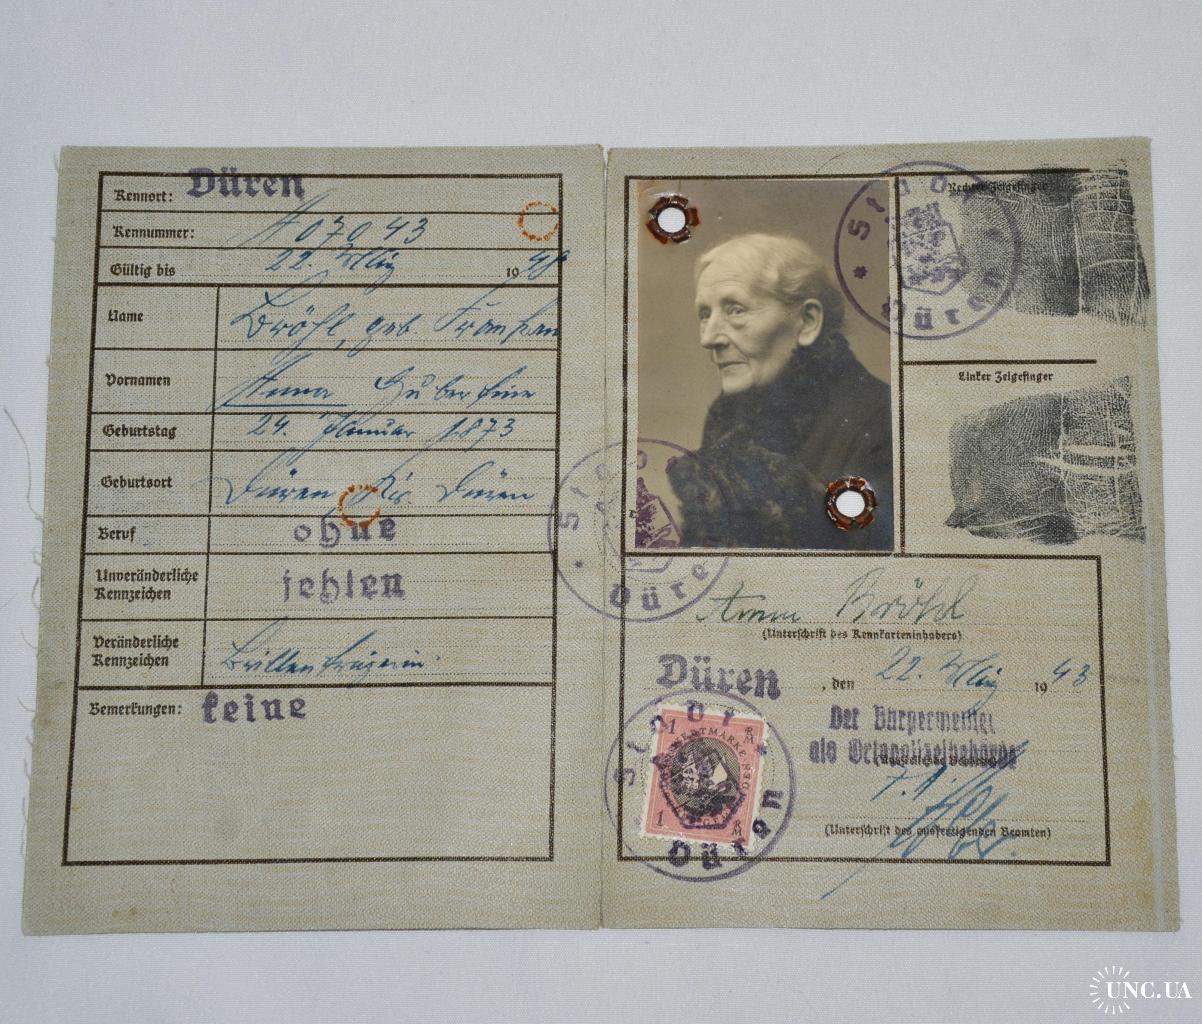 Kennort: Düren
Kennummer: A 07043
Gültig bis 22. März 1948
Name Bröhl, geb.
Vornamen Anna Hubertine
Geburtstag 24. Januar 1873
Geburtsort Düren Krs. Düren
Beruf ohne
Unveränderliche Kennzeichen fehlen
Veränderliche Kennzeichen Brillenträgerin.
Bemerkungen: keine
Rechter Zeigefinger
Stadt Düren
Linker Zeigefinger
Stadt Düren
Anna Bröhl
(Unterschrift des Kennkarteninhabers)
Düren, den 22. März 1943
Der Bürgermeister
als Ortspolizeibehörde
(Ausstellende Behörde)
(Unterschrift des ausfertigenden Beamten)
Stadt Düren
1 RM
WERTMARKE
1 RM
UNC.UA